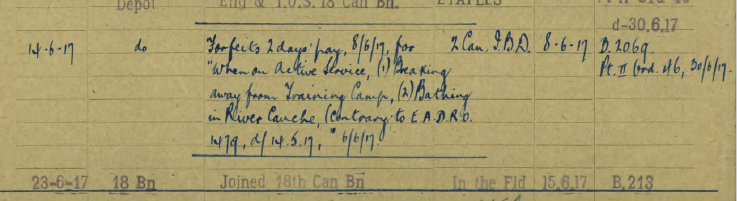 Depot Eng & T.O.S. 18 Can Bn. ETAPLES
d-30.6.17
14-6-17 do Forfeits 2 days' pay, 8/6/17, for 2 Can. I.B.D. 8-6-17 B.2069
"When on Active Service, (1) Breaking Pt. II Ord. 46, 30/6/17.
away from Training Camp, (2) Bathing
in River Canche, (contrary to E.A.D.R.O.
1479, d/ 14.5.17, " 6/6/17
23-6-17 18 Bn Joined 18th Can Bn In the Fld 15.6.17 B.213